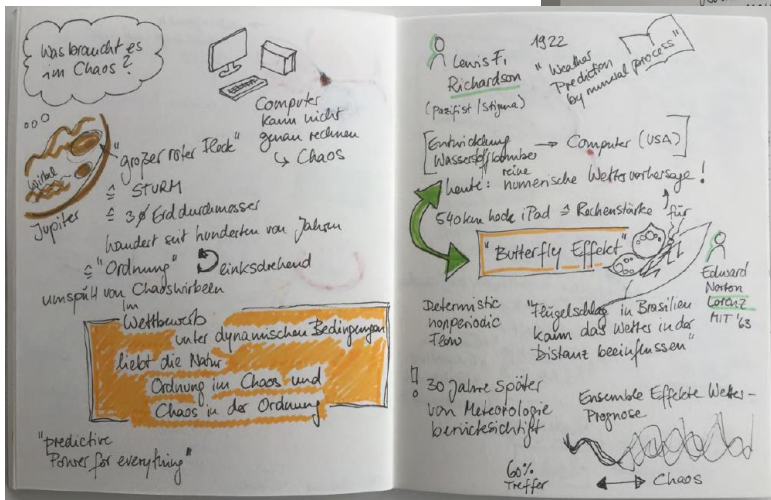 Was braucht es
im Chaos?
Computer
kann nicht
genau rechnen
↳ Chaos
"großer roter Fleck"
Wirbel
Jupiter
≙ STURM
≙ 3Ø Erddurchmesser
wandert seit hunderten von Jahren
≙ "Ordnung" linksdrehend
umspült von Chaoswirbeln
Im
Wettbewerb
unter dynamischen Bedingungen
liebt die Natur
Ordnung im Chaos und
Chaos in der Ordnung
"predictive
Power for everything"
Lewis F.
Richardson
(Pazifist / Stigma)
1922
"Weather
Prediction
by numerical process"
[Entwicklung → Computer (USA)]
Wasserstoffbomber
reine
heute: numerische Wettervorhersage!
540km hoch iPad ≙ Rechenstärke für
"Butterfly Effekt"
Edward
Norton
Lorenz
MIT '63
Determistic
nonperiodic
Flow
"Flügelschlag in Brasilien
kann das Wetter in der
Distanz beeinflussen"
! 30 Jahre später
von Meteorologie
berücksichtigt
Ensemble Effekte Wetter-
Prognose
60%
Treffer
↔ Chaos